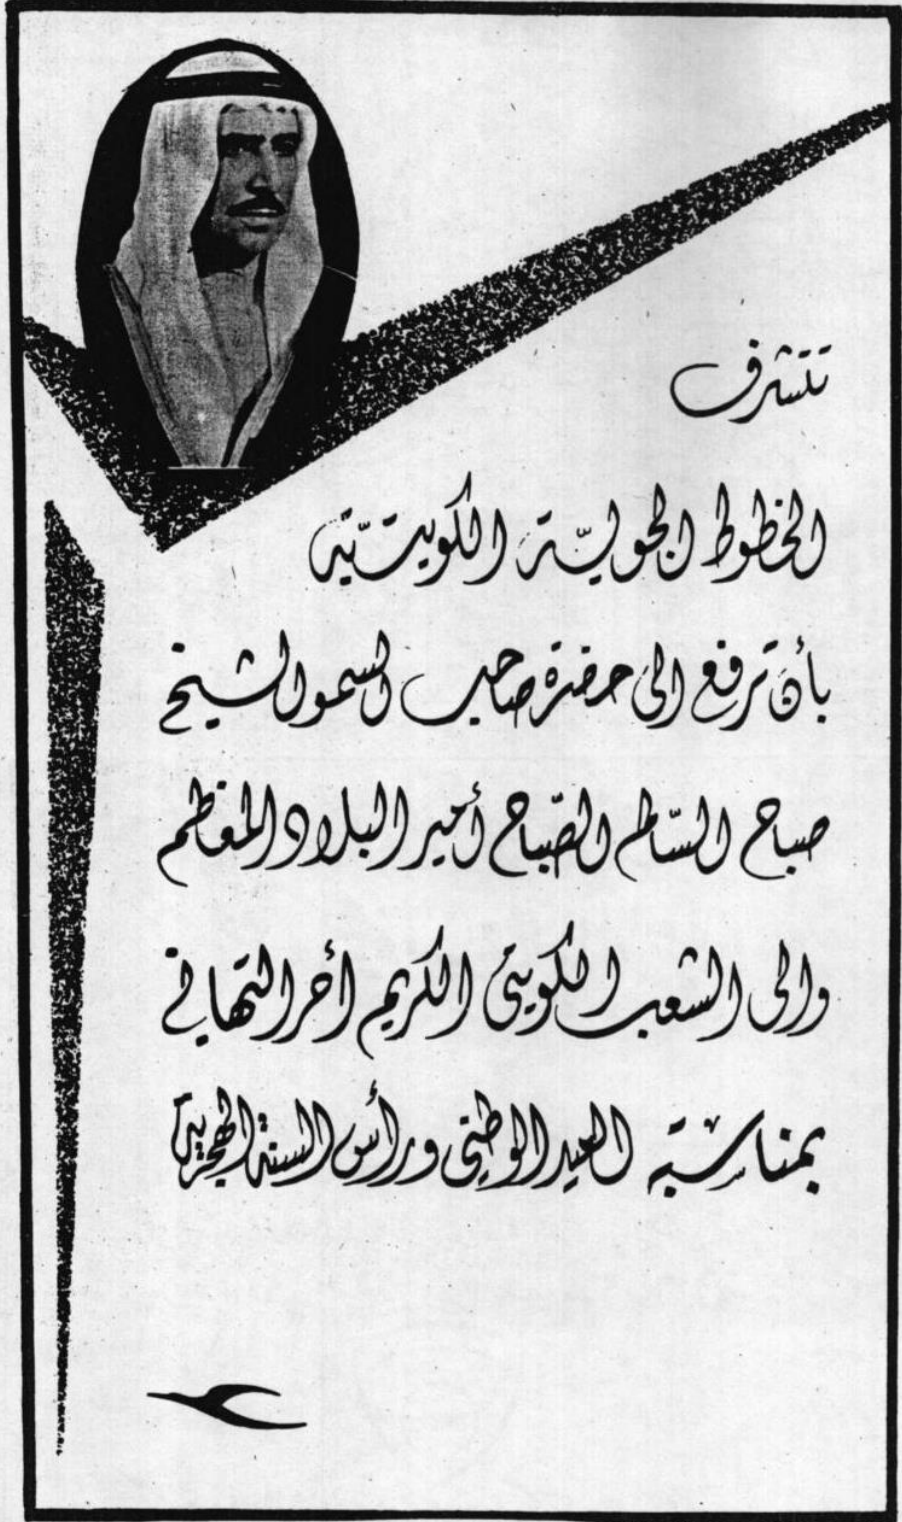 تتشرف
الخطوط الجوليّة الكويتيّة
بأن ترفع الى حضرة صاحب السمو الشيخ
صباح السّالم الصّباح أمير البلاد المعظم
والى الشعب الكويتي الكريم أحر التهاني
بمناسبة العيد الوطني ورأس السنة الهجرية